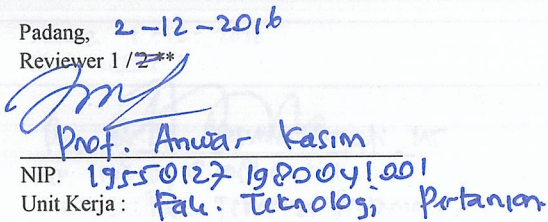 Padang, 2-12-2016
Reviewer 1 / 2**
Prof. Anwar Kasim
NIP. 19550127 198004 1 001
Unit Kerja : Fak. Teknologi Pertanian